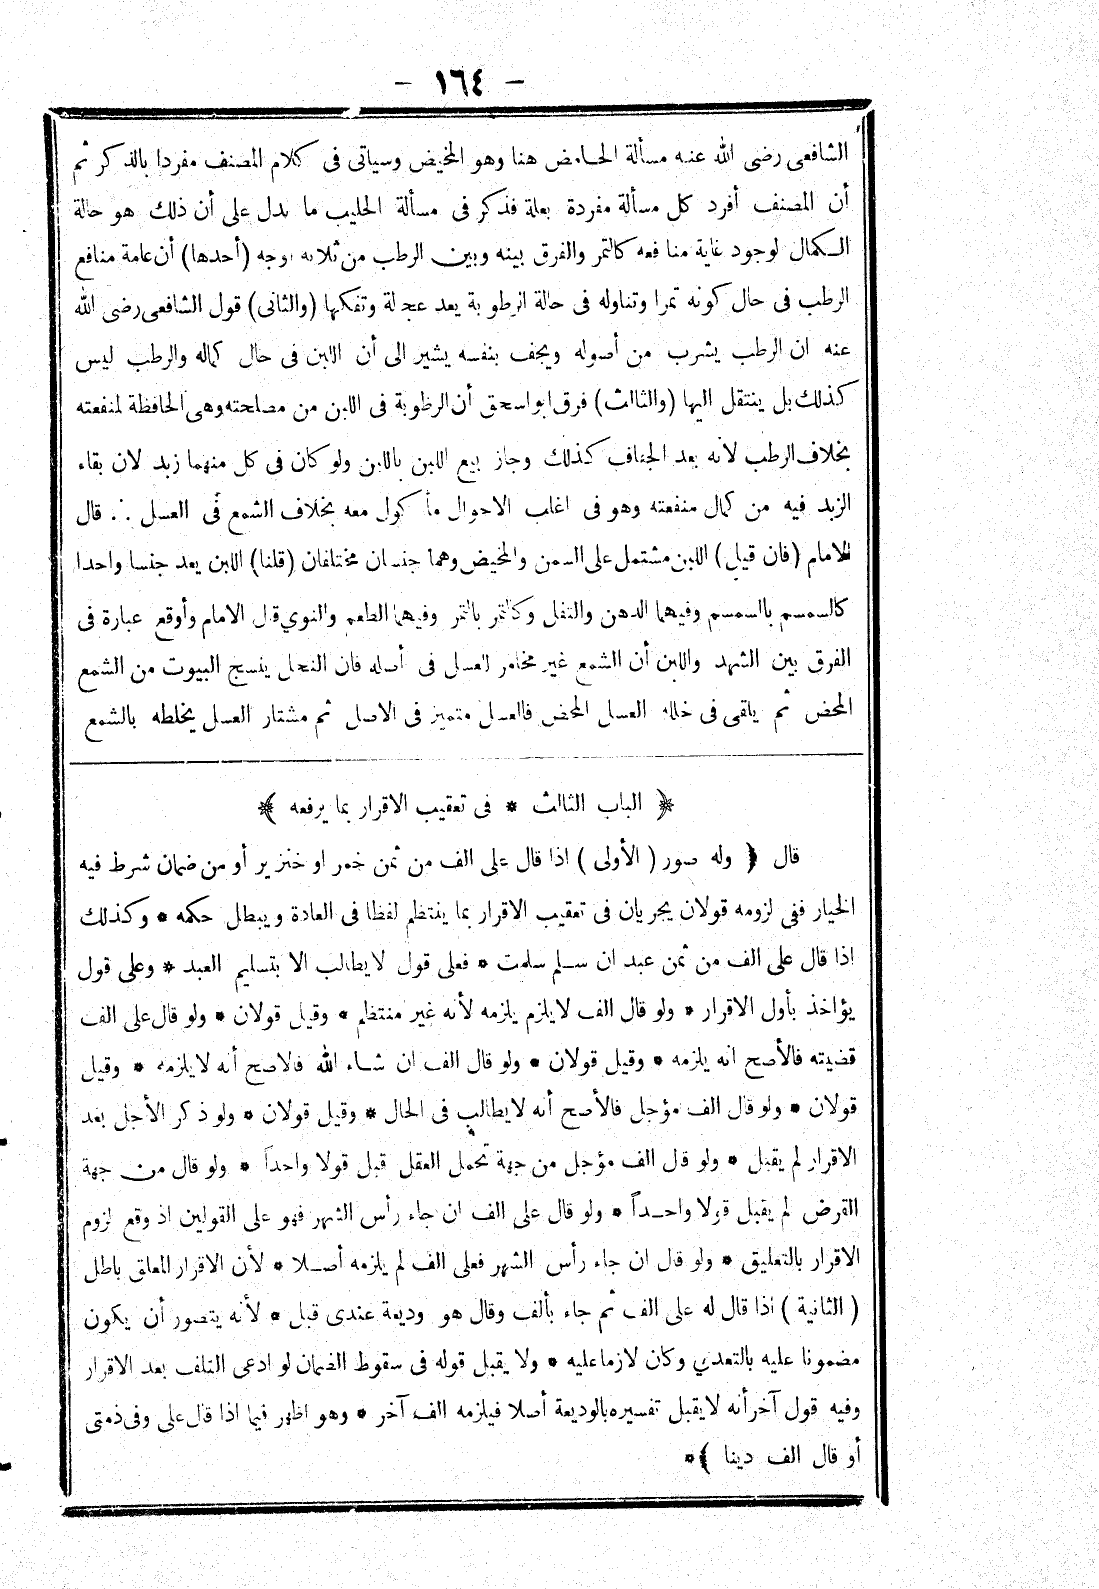 - ١٦٤ -
الشافعى رضى الله عنه مسألة الحامض هنا وهو المخيض وسيأتى فى كلام المصنف مفردا بالذكر ثم
أن المصنف أفرد كل مسألة مفردة بعلة فذكر فى مسألة الحليب ما يدل على أن ذلك هو حالة
الكمال لوجود غاية منافعه كالتمر والفرق بينه وبين الرطب من ثلاثة اوجه (أحدها) أن عامة منافع
الرطب فى حال كونه تمرا وتناوله فى حالة الرطوبة يعد عجلة وتفكها (والثانى) قول الشافعى رضى الله
عنه ان الرطب يشرب من أصوله ويجف بنفسه يشير الى أن اللبن فى حال كماله والرطب ليس
كذلك بل ينتقل اليها (والثالث) فرق ابو اسحق أن الرطوبة فى اللبن من مصلحته وهى الحافظة لمنفعته
بخلاف الرطب لأنه بعد الجفاف كذلك وجاز بيع اللبن باللبن ولو كان فى كل منهما زبد لان بقاء
الزبد فيه من كمال منفعته وهو فى اغلب الاحوال مأكول معه بخلاف الشمع فى العسل ∴ قال
الامام (فان قيل) اللبن مشتمل على السمن والمخيض وهما جنسان مختلفان (قلنا) اللبن يعد جنسا واحدا
كالسمسم بالسمسم وفيهما الدهن والثفل وكالتمر بالتمر وفيهما الطعم والنوي قال الامام وأوقع عبارة فى
الفرق بين الشهد واللبن أن الشمع غير مخامر للعسل فى أصله فان النحل ينسج البيوت من الشمع
المحض ثم يلقى فى خلله العسل المحض فالعسل متميز فى الاصل ثم مشتار العسل يخلطه بالشمع
﴿ الباب الثالث * فى تعقيب الاقرار بما يرفعه ﴾
قال ﴿ وله صور ( الأولى ) اذا قال على الف من ثمن خمر او خنزير أو من ضمان شرط فيه
الخيار ففى لزومه قولان يجريان فى تعقيب الاقرار بما ينتظم لفظا فى العادة ويبطل حكمه * وكذلك
اذا قال على الف من ثمن عبد ان سلم سلمت * فعلى قول لا يطالب الا بتسليم العبد * وعلى قول
يؤاخذ بأول الاقرار * ولو قال الف لا يلزم يلزمه لأنه غير منتظم * وقيل قولان * ولو قال على الف
قضيته فالأصح انه يلزمه * وقيل قولان * ولو قال الف ان شاء الله فالاصح أنه لا يلزمه * وقيل
قولان * ولو قال الف مؤجل فالأصح أنه لا يطالب فى الحال * وقيل قولان * ولو ذكر الأجل بعد
الاقرار لم يقبل * ولو قال الف مؤجل من جهة تحمل العقل قبل قولا واحداً * ولو قال من جهة
القرض لم يقبل قولا واحداً * ولو قال على الف ان جاء رأس الشهر فهو على القولين اذ وقع لزوم
الاقرار بالتعليق * ولو قال ان جاء رأس الشهر فعلى الف لم يلزمه أصلا * لأن الاقرار المعلق باطل
( الثانية ) اذا قال له على الف ثم جاء بألف وقال هو وديعة عندى قبل * لأنه يتصور أن يكون
مضمونا عليه بالتعدي وكان لازما عليه * ولا يقبل قوله فى سقوط الضمان لو ادعى التلف بعد الاقرار
وفيه قول آخر أنه لا يقبل تفسيره بالوديعة أصلا فيلزمه الف آخر * وهو اظهر فيما اذا قال على وفى ذمتى
أو قال الف دينا ﴾ *